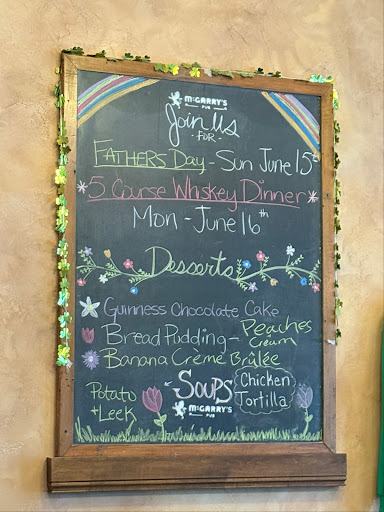 McGARRY'S
PUB
Join Us
- FOR -
FATHERS DAY - SUN JUNE 15th
5 COURSE WHISKEY DINNER
MON - JUNE 16th
Desserts
GUINNESS CHOCOLATE CAKE
BREAD PUDDING - PEACHES CREAM
BANANA CRÈME BRÛLÉE
SOUPS
McGARRY'S
PUB
POTATO
+ LEEK
CHICKEN
TORTILLA